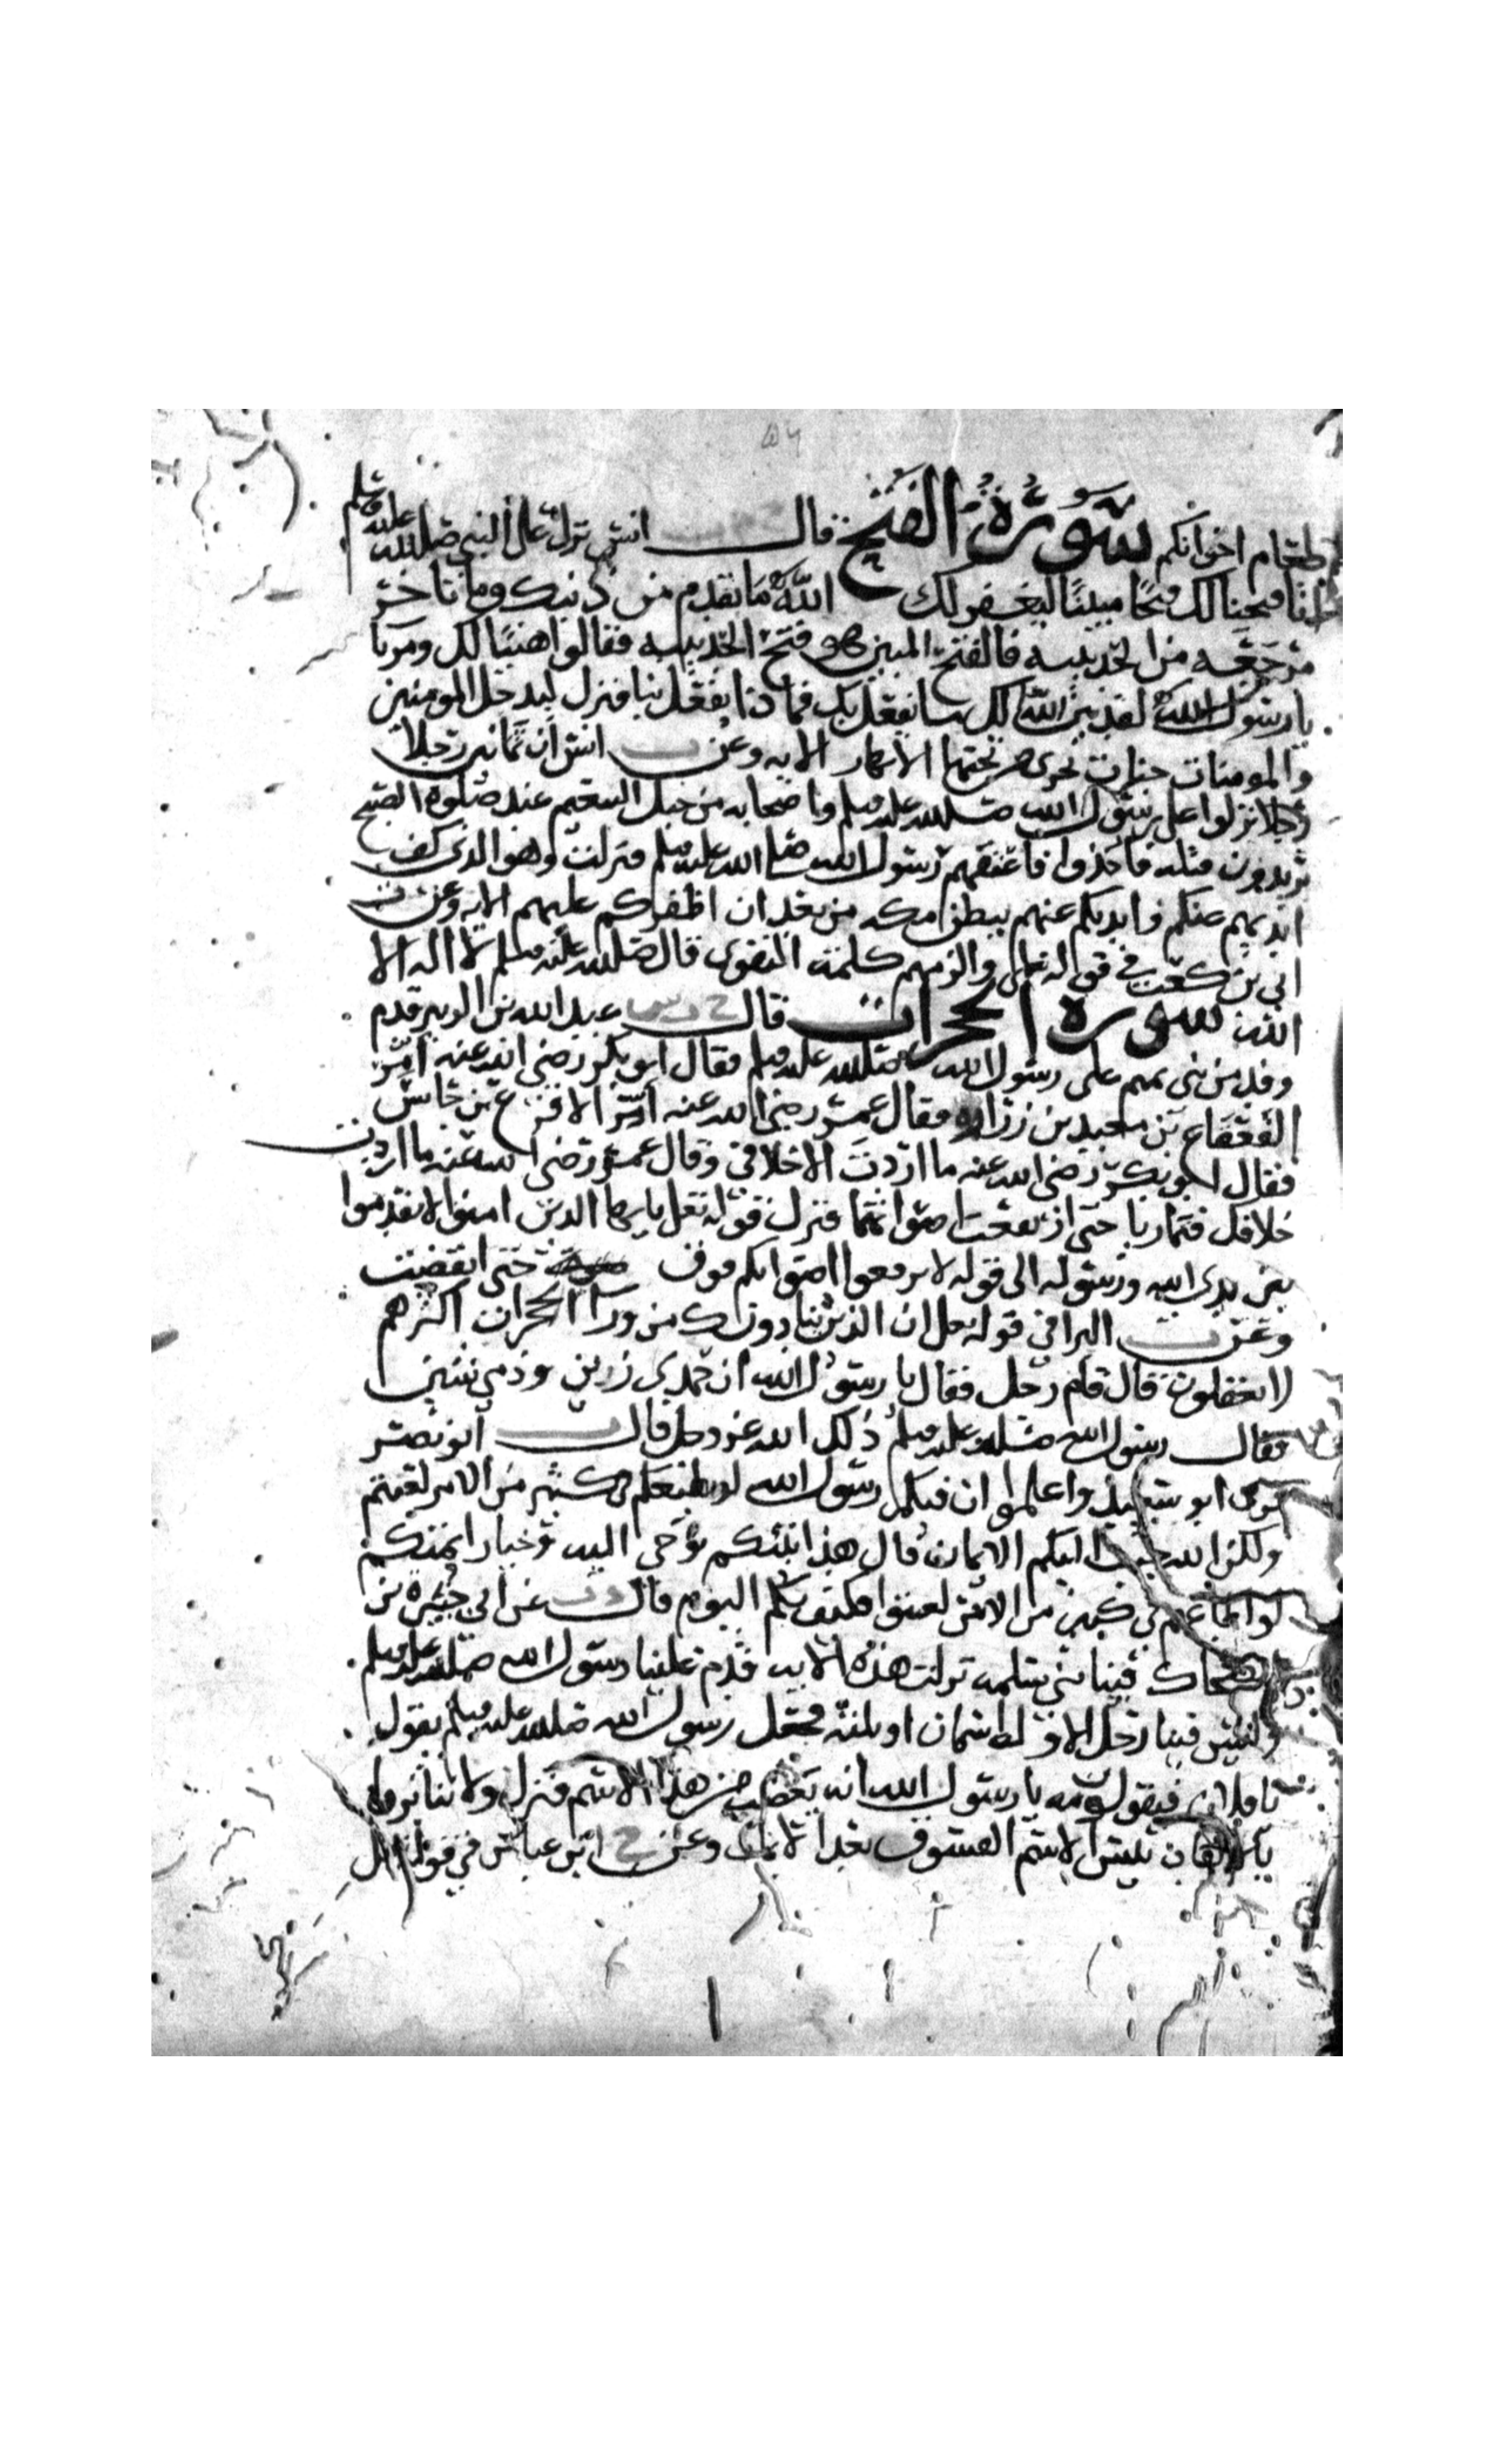 طعام اخوانكم سورة الفتح قال انس نزل على النبي صلى الله عليه وسلم
انا فتحنا لك فتحا مبينا ليغفر لك الله ما تقدم من ذنبك وما تاخر
مرجعه من الحديبيه فالفتح المبين هو فتح الحديبيه فقالوا هنيا لك ومريا
يا رسول الله لقد بين الله لك ما يفعل بك فما ذا يفعل بنا فنزل ليدخل المومنين
والمومنات جنات تجري من تحتها الانهار الايه وعن انس ان ثمانين رجلا
رجلا نزلوا على رسول الله صلى الله عليه وسلم واصحابه من جبل التنعيم عند صلوة الصبح
يريدون قتله فاخذوا فاعتقهم رسول الله صلى الله عليه وسلم فنزلت وهو الذي كف
ايديهم عنكم وايديكم عنهم ببطن مكه من بعد ان اظفركم عليهم الايه وعن
ابي بن كعب في قوله تعلى والزمهم كلمة التقوى قال صلى الله عليه وسلم لا اله الا
الله سورة الحجرات قال عبد الله بن الزبير قدم
وفد من بني تميم على رسول الله صلى الله عليه وسلم فقال ابو بكر رضي الله عنه امر
القعقاع بن معبد بن زراره فقال عمر رضي الله عنه امر الاقرع بن حابس
فقال ابو بكر رضي الله عنه ما اردت الا خلافي وقال عمر رضي الله عنه ما اردت
خلافك فتماريا حتى ارتفعت اصواتهما فنزل قوله تعلى يايها الذين امنوا لا تقدموا
بين يدي الله ورسوله الى قوله لا ترفعوا اصواتكم فوق حتى انقضت
وعن البرا في قوله تعلى ان الذين ينادونك من ورا الحجرات اكثرهم
لا يعقلون قال قام رجل فقال يا رسول الله ان حمدي زين وذمي شين
فقال رسول الله صلى الله عليه وسلم ذلك الله عز وجل قال ابو نضر
قرى ابو سعيد واعلموا ان فيكم رسول الله لو يطيعكم في كثير من الامر لعنتم
ولكن الله حبب اليكم الايمان قال هذا نبيكم يوحى اليه وخيار ايمتكم
لو اطاعهم في كثير من الامر لعنتوا فكيف بكم اليوم قال عن ابي جبيره بن
الضحاك فينا بني سلمه نزلت هذه الايه قدم علينا رسول الله صلى الله عليه وسلم
وليس فينا رجل الا وله اسمان او ثلثه فجعل رسول الله صلى الله عليه وسلم يقول
يا فلان فيقولون مه يا رسول الله انه يغضب من هذا الاسم فنزل ولا تنابزوا
بالالقاب بيس الاسم الفسوق بعد الايمان وعن ابن عباس في قوله